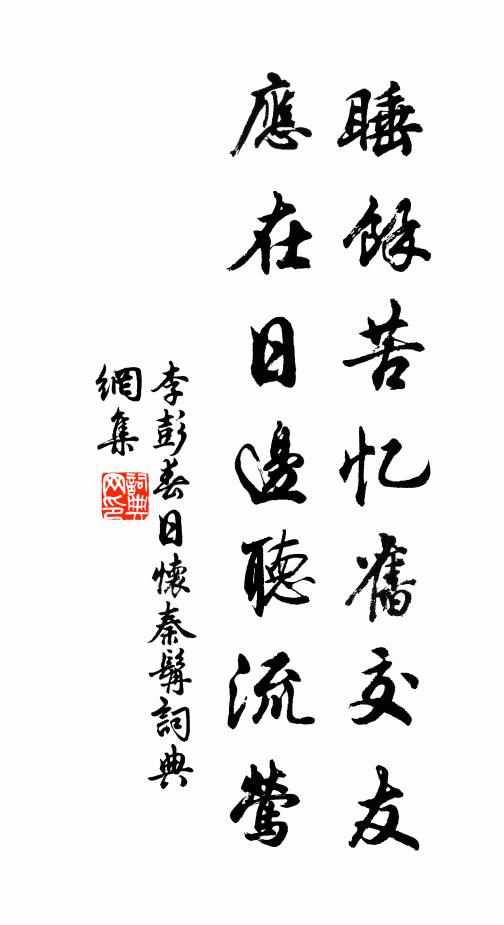 睡餘苦忆舊交友
應在日邊聽流鶯
李彭春日懷秦髯詞典
網集
詞典网印